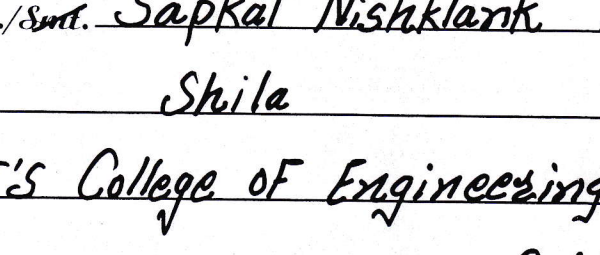 ./Smt. Sapkal Nishklank
Shila
's College of Engineering